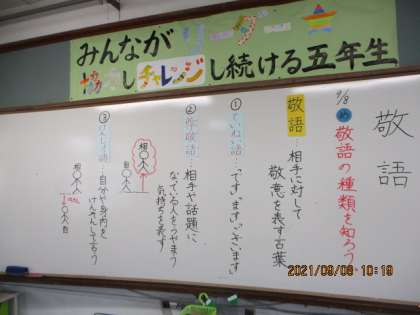 みんなが
協力しチャレンジし続ける五年生
敬語
9/8
め 敬語の種類を知ろう
敬語…相手に対して
敬意を表す言葉
①ていねい語…「です」「ます」「ございます」
②尊敬語…相手や話題に
なっている人をうやまう
気持ちを表す
相
自
③けんじょう語…自分や身内を
けんそんして言う
相
自
2021/09/08 10:19